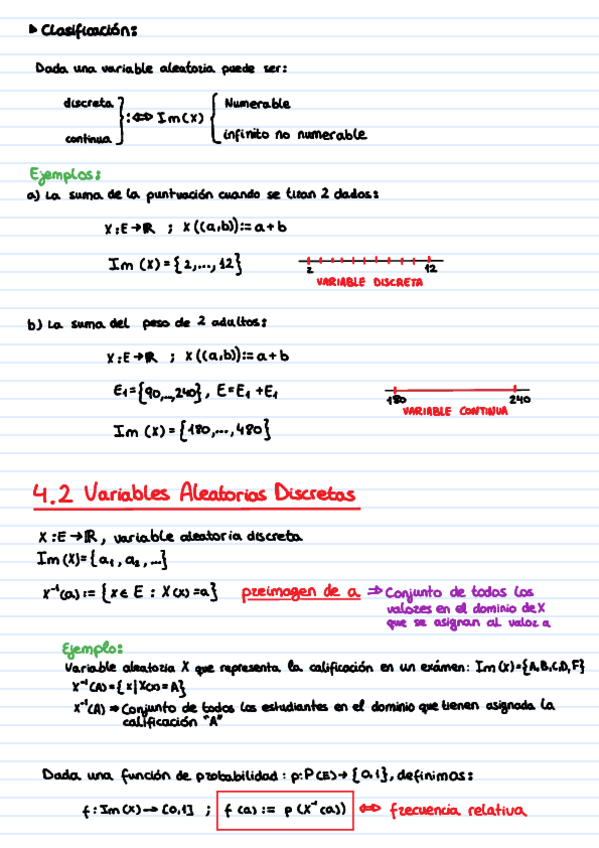 ▶ Clasificación:
Dada una variable aleatoria puede ser:
discreta
continua
:⇔ Im(X)
Numerable
infinito no numerable
Ejemplos:
a) La suma de la puntuación cuando se tiran 2 dados:
X:E→ℝ ; X((a,b)):=a+b
Im (X)={2,...,12}
2 12
VARIABLE DISCRETA
b) La suma del peso de 2 adultos:
X:E→ℝ ; X((a,b)):=a+b
E₁={90,...,240}, E=E₁+E₁
180 240
VARIABLE CONTINUA
Im (X)={180,...,480}
4.2 Variables Aleatorias Discretas
X:E→ℝ, variable aleatoria discreta
Im(X)={a₁, a₂, ...}
X⁻¹(a):= {x∈E : X(x)=a} preimagen de a ⇒ Conjunto de todos los
valores en el dominio de X
que se asignan al valor a
Ejemplo:
Variable aleatoria X que representa la calificación en un exámen: Im(X)={A,B,C,D,F}
X⁻¹(A)={x|X(x)=A}
X⁻¹(A) ⇒ Conjunto de todos los estudiantes en el dominio que tienen asignada la
calificación "A"
Dada una función de probabilidad: p:P(E)→{0,1}, definimos:
f:Im(X)→[0,1] ; f(a):= p(X⁻¹(a)) ⇔ frecuencia relativa